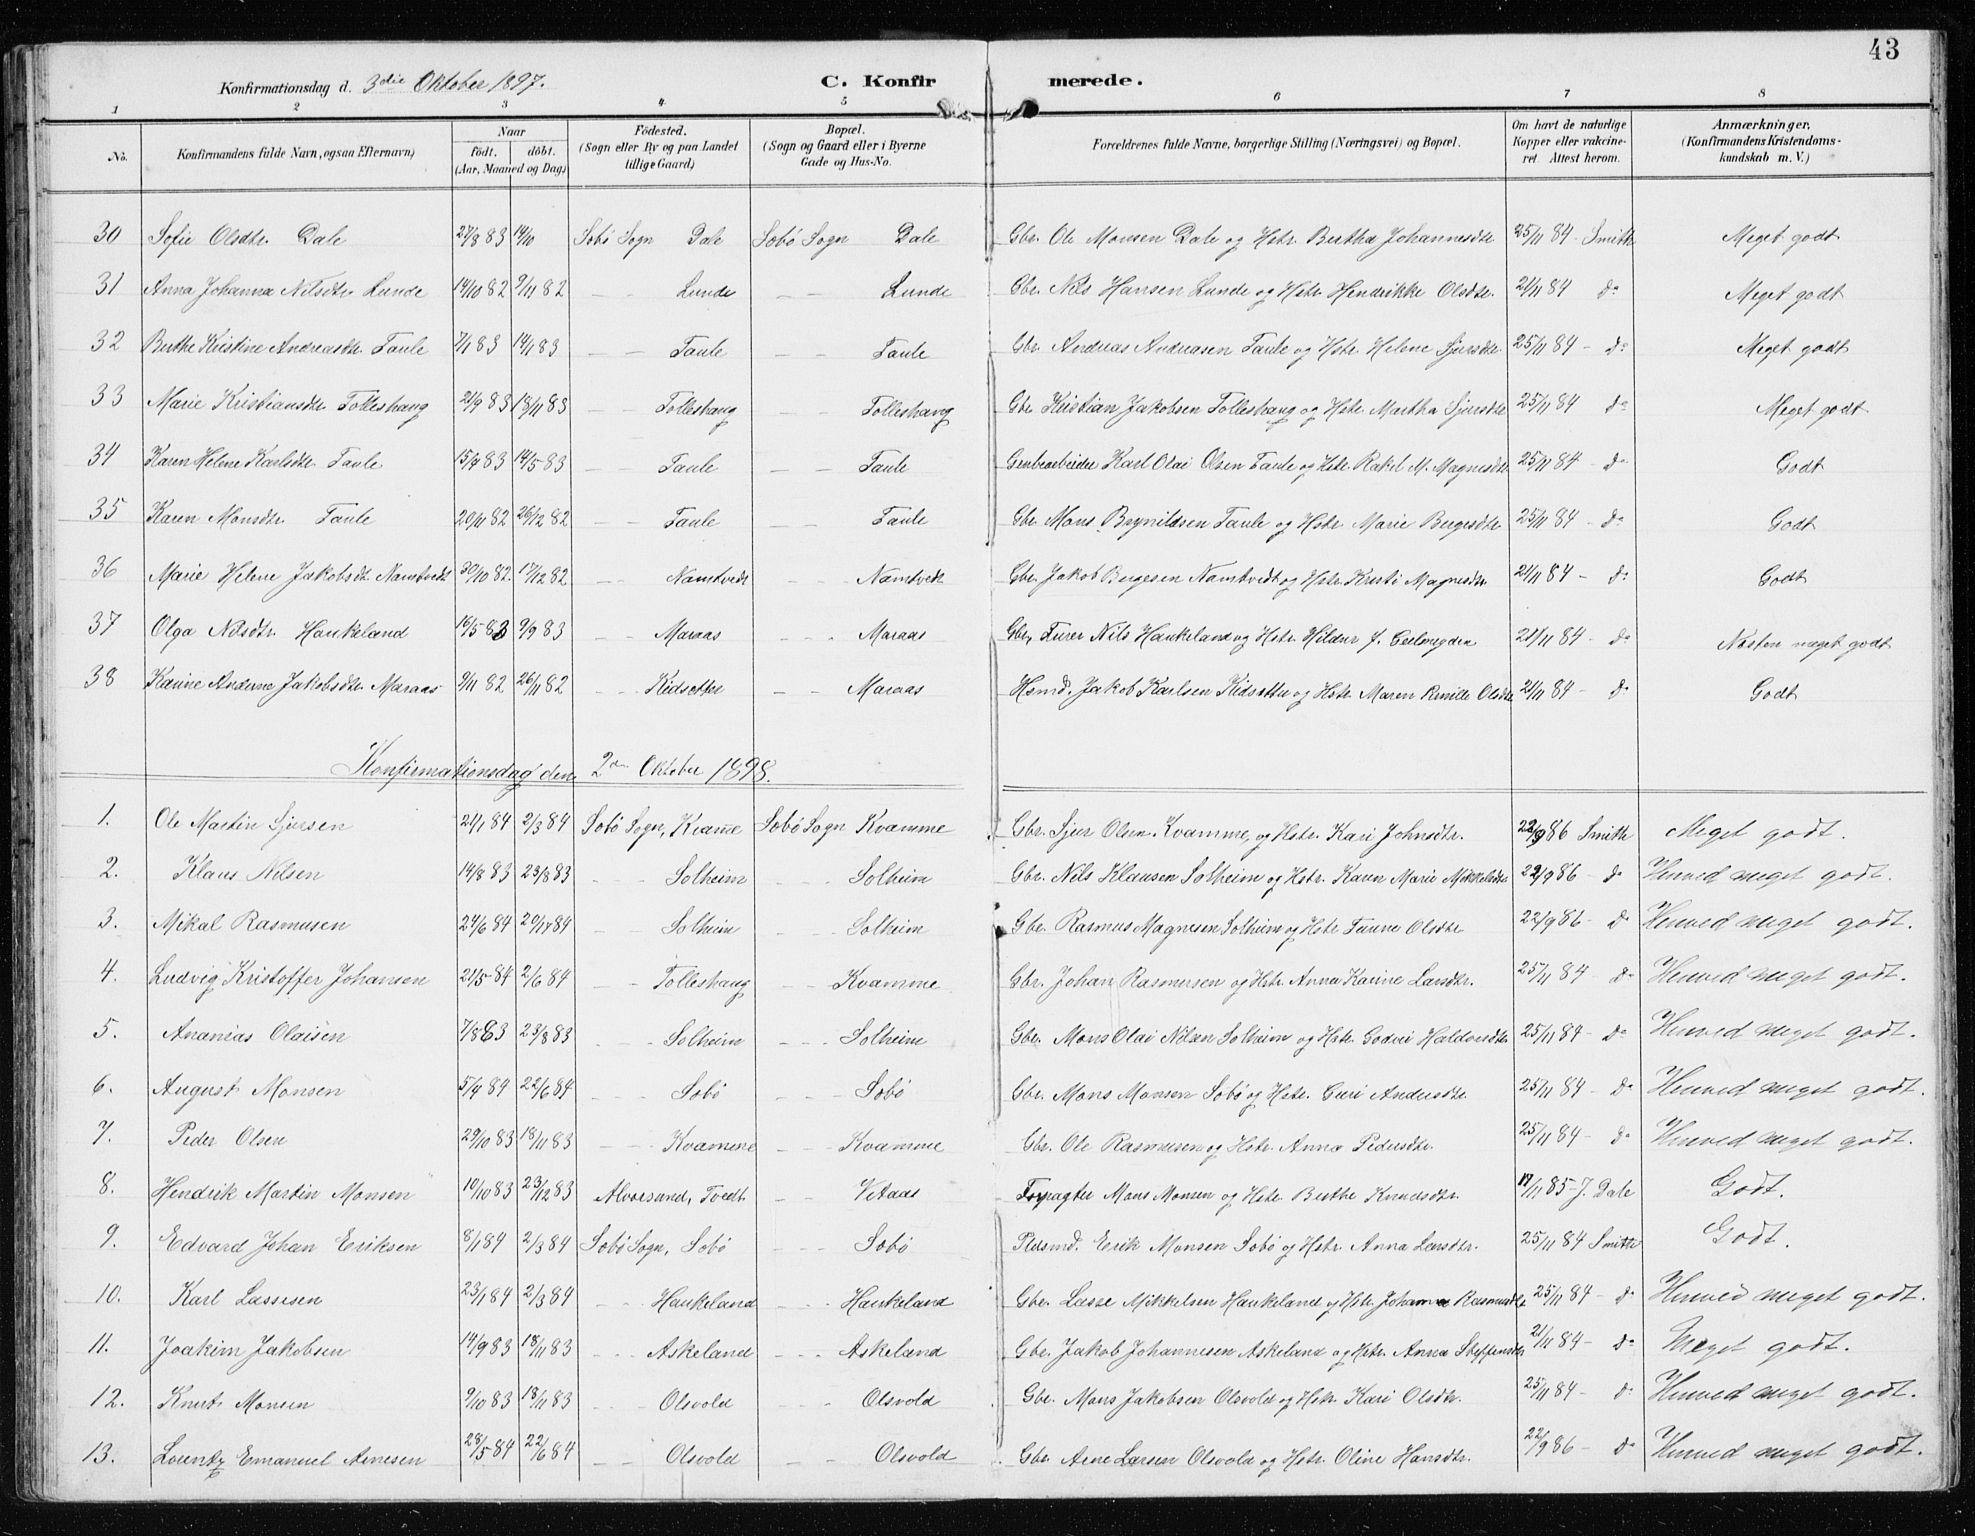 43
Konfirmationsdag d. 3die Oktober 1897. C. Konfirmerede.
1 2 3 4 5 6 7 8
No. Konfirmandens fulde Navn, ogsaa Efternavn) Naar födt. döbt. (Aar, Maaned og Dag) Födested. (Sogn eller By og paa Landet tillige Gaard) Bopæl. (Sogn og Gaard eller i Byerne Gade og Hus-No. Forældrenes fulde Navne, borgerlige Stilling (Næringsvei) og Bopæl. Om havt de naturlige Kopper eller vakcineret. Attest herom. Anmærkninger. (Konfirmandens Kristendomskundskab m. V.)
30 Sofie Olsdtr. Dale 27/8 83 14/10 Sæbö Sogn Dale Sæbö Sogn Dale Gbr. Ole Monsen Dale og Hstr. Bertha Johannesdtr 25/11 84 - Smith Meget godt
31 Anna Johanna Nilsdtr. Lunde 14/10 82 9/11 82 — — Lunde — — Lunde Gbr. Nils Hansen Lunde og Hstr. Hendrikke Olsdtr. 21/11 84 do Meget godt
32 Berthe Kristine Andreasdtr. Taule 7/1 83 14/1 83 — — Taule — — Taule Gbr. Andreas Andreasen Taule og Hstr. Helene Sjursdtr. 25/11 84 - do Meget godt
33 Marie Kristiansdtr Tolleshaug 21/9 83 18/11 83 — Tolleshaug — — Tolleshaug Gbr. Kristian Jakobsen Tolleshaug og Hstr. Martha Sjursdtr 25/11 84 do Meget godt
34 Karen Helene Karlsdtr. Taule 15/4 83 14/5 83 — Taule — — Taule Grubearbeider Karl Olai Olsen Taule og Hstr. Rakel M. Magnesdtr 25/11 84 - do Godt
35 Karen Monsdtr. Taule 20/11 82 26/12 82 — — Taule — — Taule Gbr. Mons Brynildsen Taule og Hstr. Marie Bergesdtr 25/11 84 - do Godt
36 Marie Helene Jakobsdt. Namtvedt 30/10 82. 17/12 82 — — Namtvedt — — Namtvedt Gbr. Jakob Bergesen Namtvedt og Hstr. Kristi Magnesdtr 21/11 84 - do Godt
37 Olga Nilsdtr. Haukeland 16/5 83 9/9 83 — — Maraas — — Maraas Gbr. Furer Nils Haukeland og Hstr. Hildur J. 21/11 84 - do Næsten meget godt
38 Karine Andrine Jakobsdtr. Maraas 9/11 82 26/11 82 — — Kidsetter — — Maraas Hsmd. Jakob Karlsen Kidsetter og Hstr. Maren Olsdtr 21/11 84 - do Godt
Konfirmationsdag den 2den Oktober 1898.
1. Ole Martin Sjursen 21/1 84 2/3 84 Sæbö Sogn, Kvamme Sæbö Sogn Kvamme Gbr. Sjur Olsen Kvamme, og Hstr. Kari Johnsdtr. 22/9 86 Smith Meget godt.
2. Klaus Nilsen 14/8 83 23/8 83 — — Solheim — — Solheim Gbr. Nils Klausen Solheim og Hstr. Karen Marie Mikkelsdtr 22/9 86 - do Henved meget godt.
3. Mikal Rasmusen 24/6 84 20/7 84 — — Solheim — — Solheim Gbr. Rasmus Magnesen Solheim og Hstr. Olsdtr 22/9 86 - do Henved meget godt.
4. Ludvig Kristoffer Johansen 21/5 84 2/6 84 — Tolleshaug — — Kvamme Gbr. Johan Rasmusen og Hstr. Anna Karine Larsdtr. 25/11 84 - do Henved meget godt.
5. Ananias Olaisen 7/8 83 23/8 83 — — Solheim — — Solheim Gbr. Mons Olai Nilsen Solheim og Hstr. Haldorsdtr 25/11 84 - do Henved meget godt.
6. August Monsen 5/4 84 22/6 84 — — Sæbö — — Sæbö Gbr. Mons Monsen Sæbö og Hstr. Guri Andersdtr 25/11 84 - do Henved meget godt.
7. Peder Olsen 29/10 83 18/11 83 — — Kvamme — — Kvamme Gbr. Ole Rasmusen og Hstr. Anna Pedersdtr. 25/11 84 - do Henved meget godt.
8. Hendrik Martin Monsen 10/10 83 23/12 83 Alversund, Tvedt — — Vetaas Forpagter Mons Monsen og Hstr. Berthe Knudsdtr. 17/11 85 - J. Dale Godt.
9. Edvard Johan Eriksen 8/1 84 2/3 84 Sæbö Sogn, Sæbö — — Sæbö Pldsmd. Erik Monsen Sæbö og Hstr. Anna Larsdtr. 25/11 84 Smith Godt.
10. Karl Lassesen 23/1 84 2/3 84 — — Haukeland — — Haukeland Gbr. Lasse Mikkelsen Haukeland og Hstr. Johanna Rasmusdtr 25/11 84 - do Henved meget godt.
11. Joakim Jakobsen 14/9 83 18/11 83 — — Askeland — — Askeland Gbr. Jakob Johannesen Askeland og Hstr. Anna Steffensdtr 21/11 84 - do Meget godt.
12. Knut Monsen 9/10 83 18/11 83 — — Olsvold — — Olsvold Gbr. Mons Jakobsen Olsvold og Hstr. Kari Olsdtr. 25/11 84 - do Henved meget godt.
13. Lorentz Emanuel Arnesen 28/5 84 22/6 84 — — Olsvold — — Olsvold Gbr. Arne Larsen Olsvold og Hstr. Oline Hansdtr. 22/9 86 - do Henved meget godt.